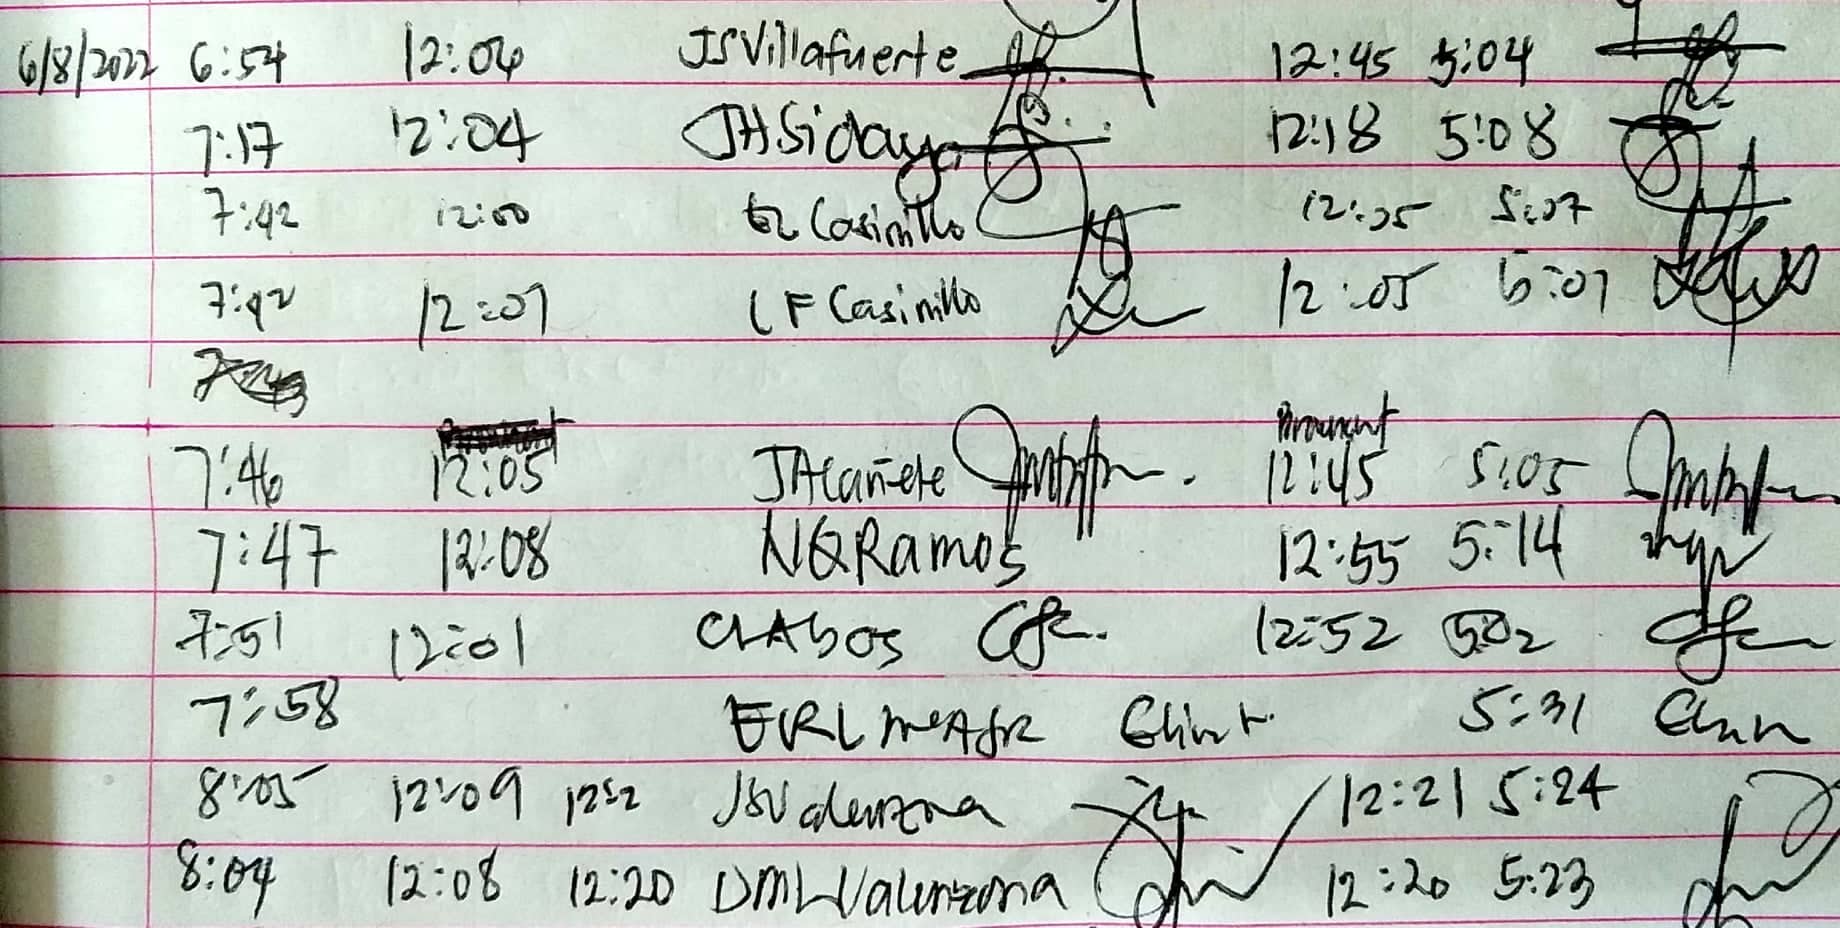 6/8/2022 6:54 12:04 JSVillafuerte 12:45 5:04
7:17 12:04 JHSiday 12:18 5:08
7:42 12:00 Casinillo 12:05 5:07
7:42 12:07 LF Casinillo 12:05 5:07
7:46 12:05 JACañete 12:45 5:05
7:47 12:08 NQRamos 12:55 5:14
7:51 12:01 CLAbos 12:52 5:02
7:58 5:31
8:05 12:09 JSValenzona 12:21 5:24
8:04 12:08 12:20 DMLValenzona 12:20 5:23